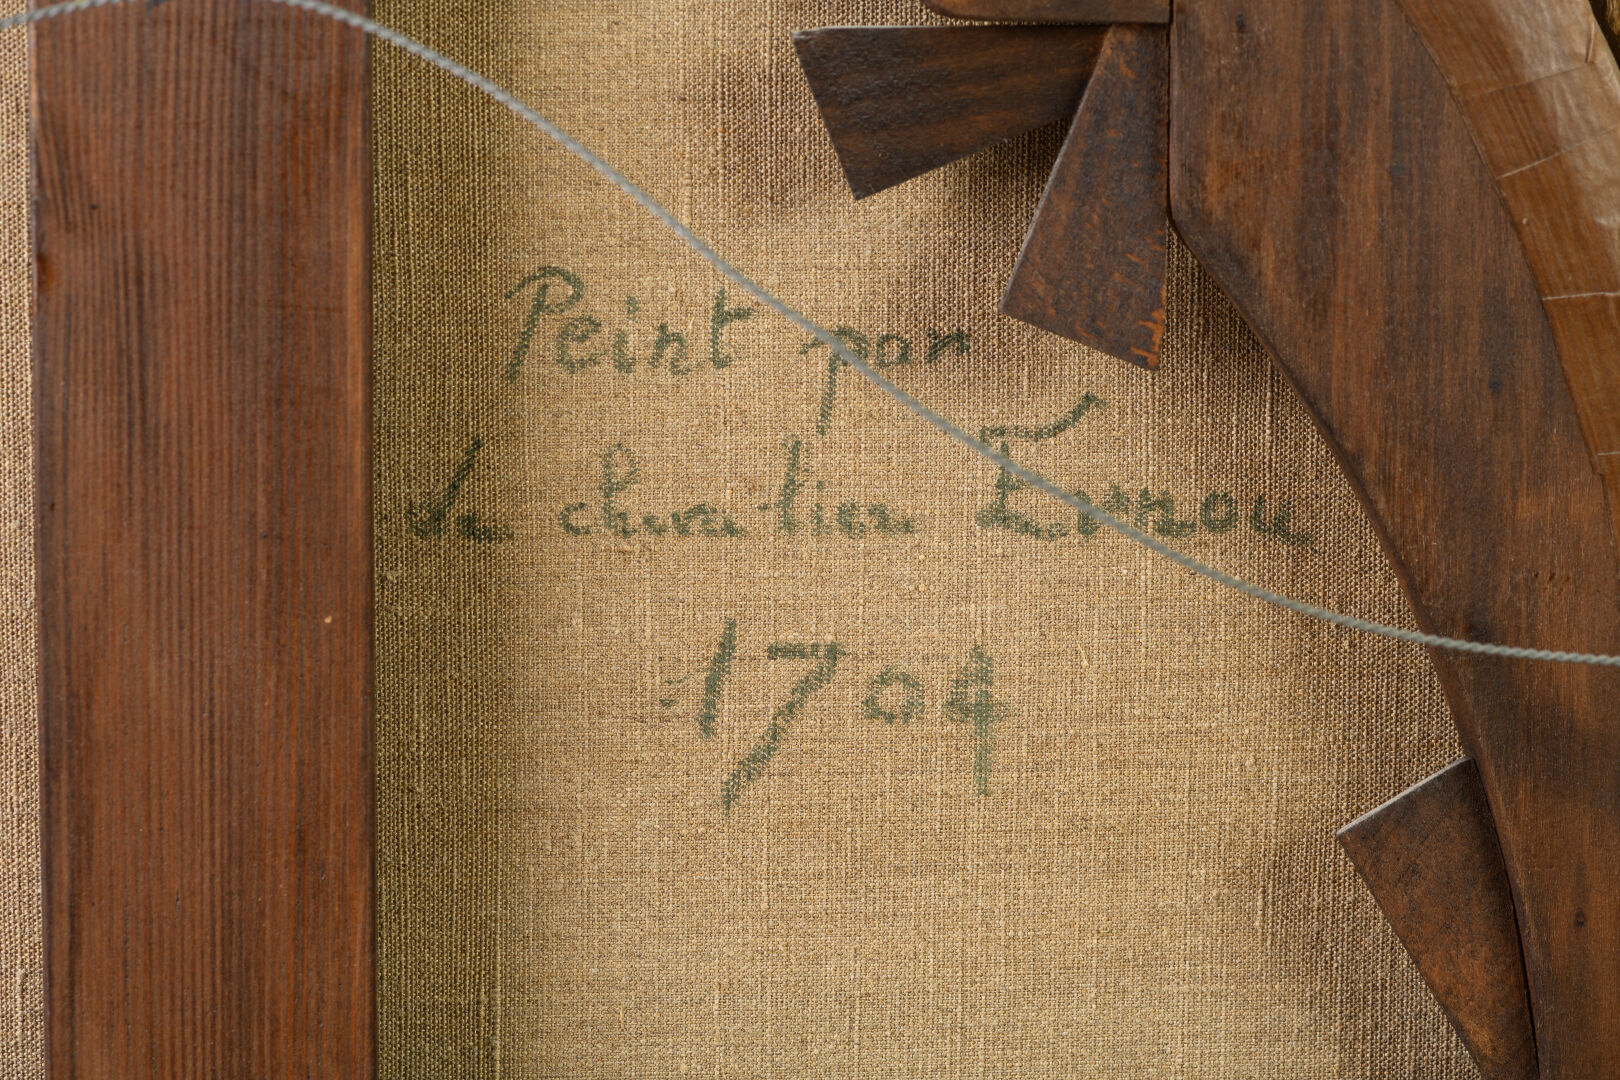 Peint par
Le chevalier Ernou
1704